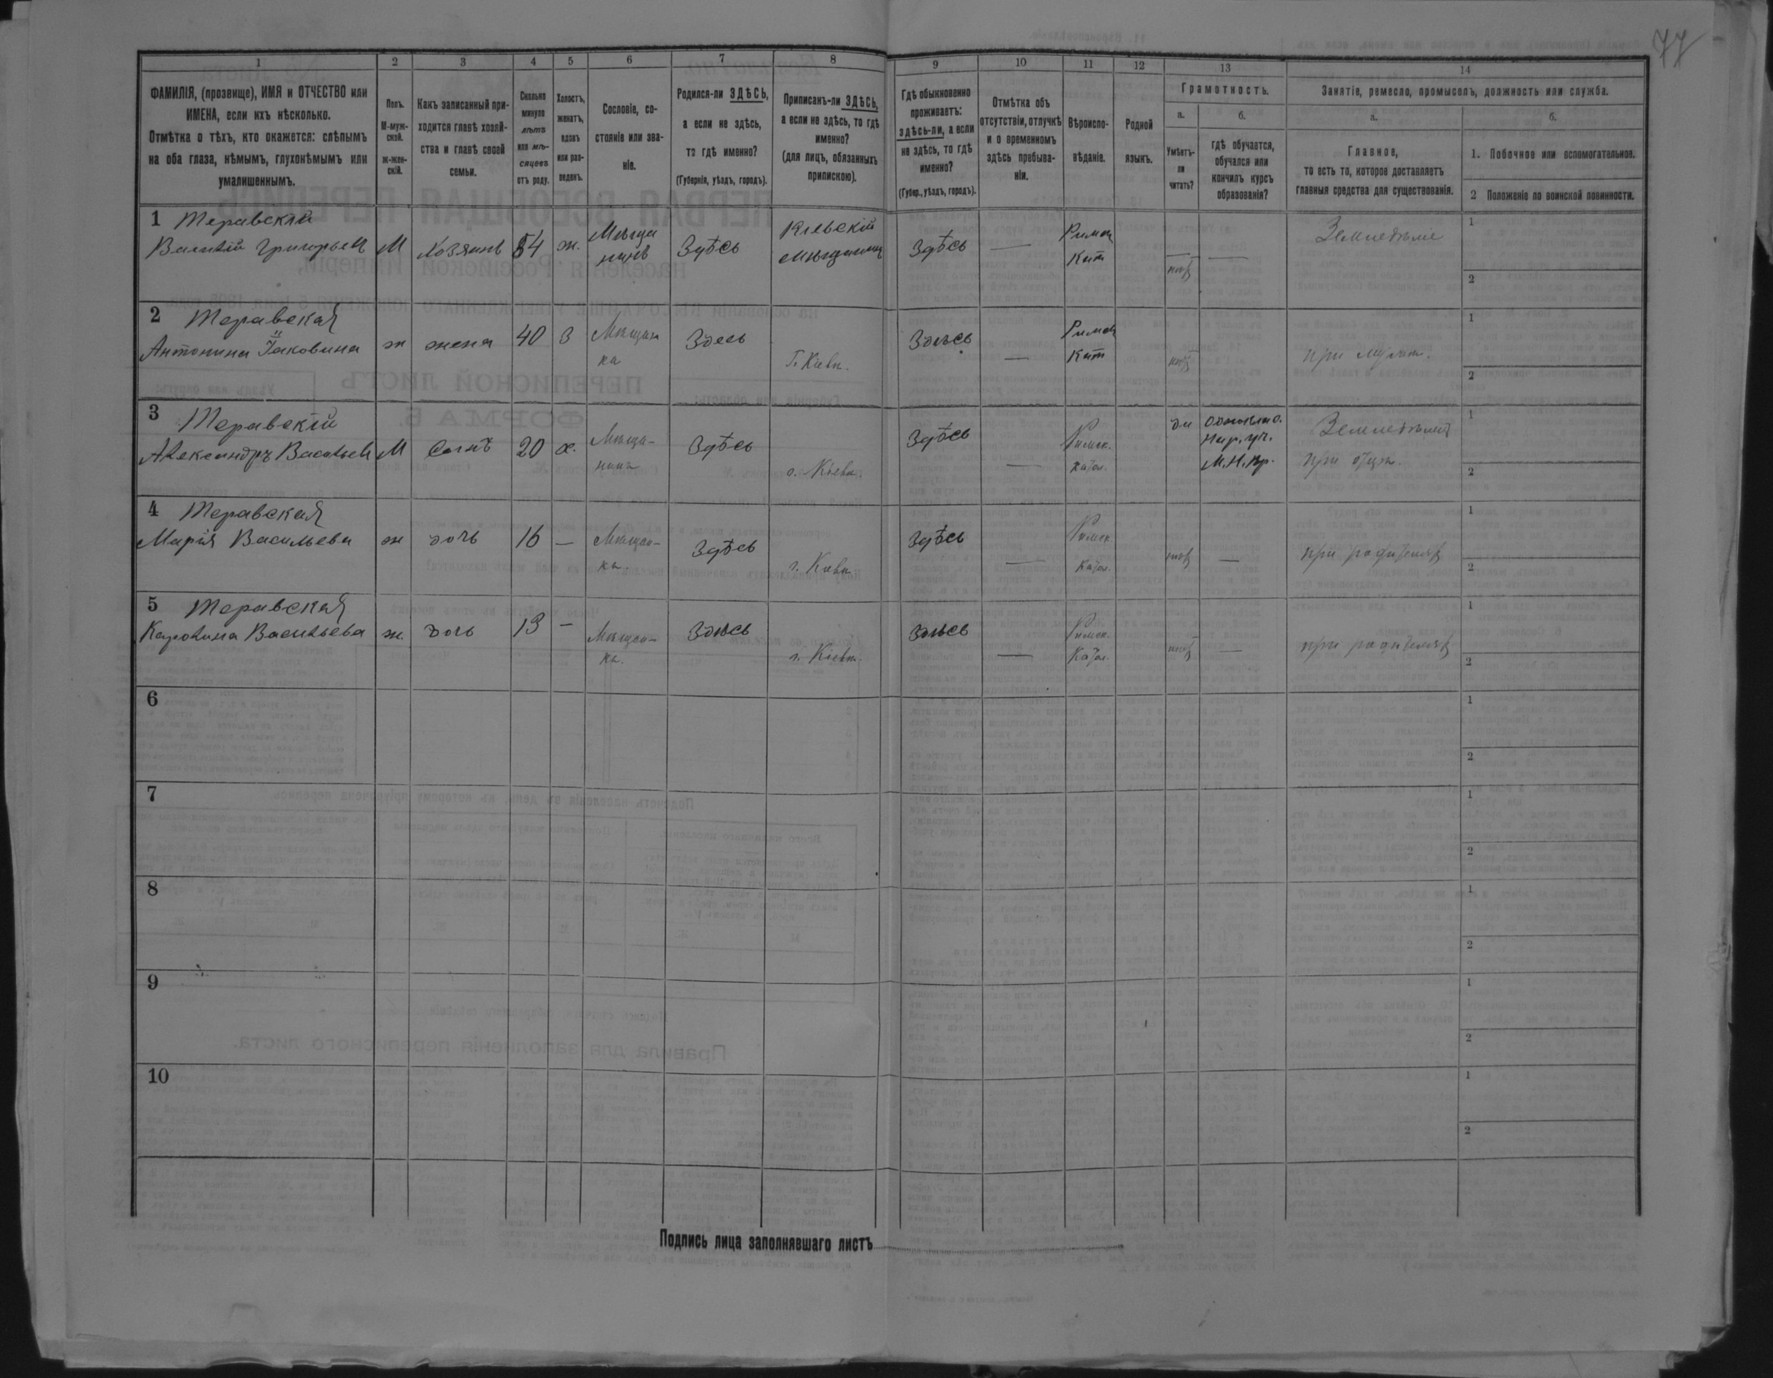 77
1 2 3 4 5 6 7 8 9 10 11 12 13 14
ФАМИЛІЯ, (прозвище), ИМЯ и ОТЧЕСТВО или
ИМЕНА, если ихъ нѣсколько.
Отмѣтка о тѣхъ, кто окажется: слѣпымъ
на оба глаза, нѣмымъ, глухонѣмымъ или
умалишеннымъ.
Полъ.
М-муж-
ской.
ж-жен-
скій.
Какъ записанный при-
ходится главѣ хозяй-
ства и главѣ своей
семьи.
Сколько
минуло
лѣтъ
или мѣ-
сяцевъ
отъ роду.
Холостъ,
женатъ,
вдовъ
или раз-
веденъ.
Сословіе, со-
стояніе или зва-
ніе.
Родился-ли ЗДѢСЬ,
а если не здѣсь,
то гдѣ именно?
(Губернія, уѣздъ, городъ).
Приписанъ-ли ЗДѢСЬ,
а если не здѣсь, то гдѣ
именно?
(для лицъ, обязанныхъ
припискою).
Гдѣ обыкновенно
проживаетъ:
здѣсь-ли, а если
не здѣсь, то гдѣ
именно?
(Губер., уѣздъ, городъ).
Отмѣтка объ
отсутствіи, отлучкѣ
и о временномъ
здѣсь пребыва-
ніи.
Вѣроиспо-
вѣданіе.
Родной
языкъ.
Грамотность.
а.
Умѣетъ-
ли
читать?
б.
гдѣ обучается,
обучался или
кончилъ курсъ
образованія?
Занятіе, ремесло, промыселъ, должность или служба.
а.
Главное,
то есть то, которое доставляетъ
главныя средства для существованія.
б.
1. Побочное или вспомогательное.
2 Положеніе по воинской повинности.
1 Теравскій
Василій Григорьев М Хозяинъ 54 ж. Мѣща
нинъ Здѣсь Кіевскій
мѣщанин Здѣсь — Римск
Кат — —
Земледѣліе
1
2
2 Теравская
Антонина Іаковина ж жена 40 З Мѣщан
ка Здесь Г. Кіева. Здѣсь — Римск
Кат при мужѣ.
1
2
3 Теравскій
Александръ Васильев М сынъ 20 х. Мѣща-
нинъ Здѣсь г. Кіева. Здѣсь — Римск.
Катол. да
Нар. уч.
М.Н.Пр.
Земледѣліе
при отцѣ.
1
2
4 Теравская
Марія Васильева ж дочь 16 — Мѣщан-
ка. Здѣсь г. Кіева Здѣсь — Римск.
Катол. — при родителях
1
2
5 Теравская
Каролина Васильева ж. дочь 13 — Мѣщан-
ка. Здѣсь г. Кіева. Здѣсь — Римск.
Катол. — при родителях
1
2
6
1
2
7
1
2
8
1
2
9
1
2
10
1
2
Подпись лица заполнявшаго листъ